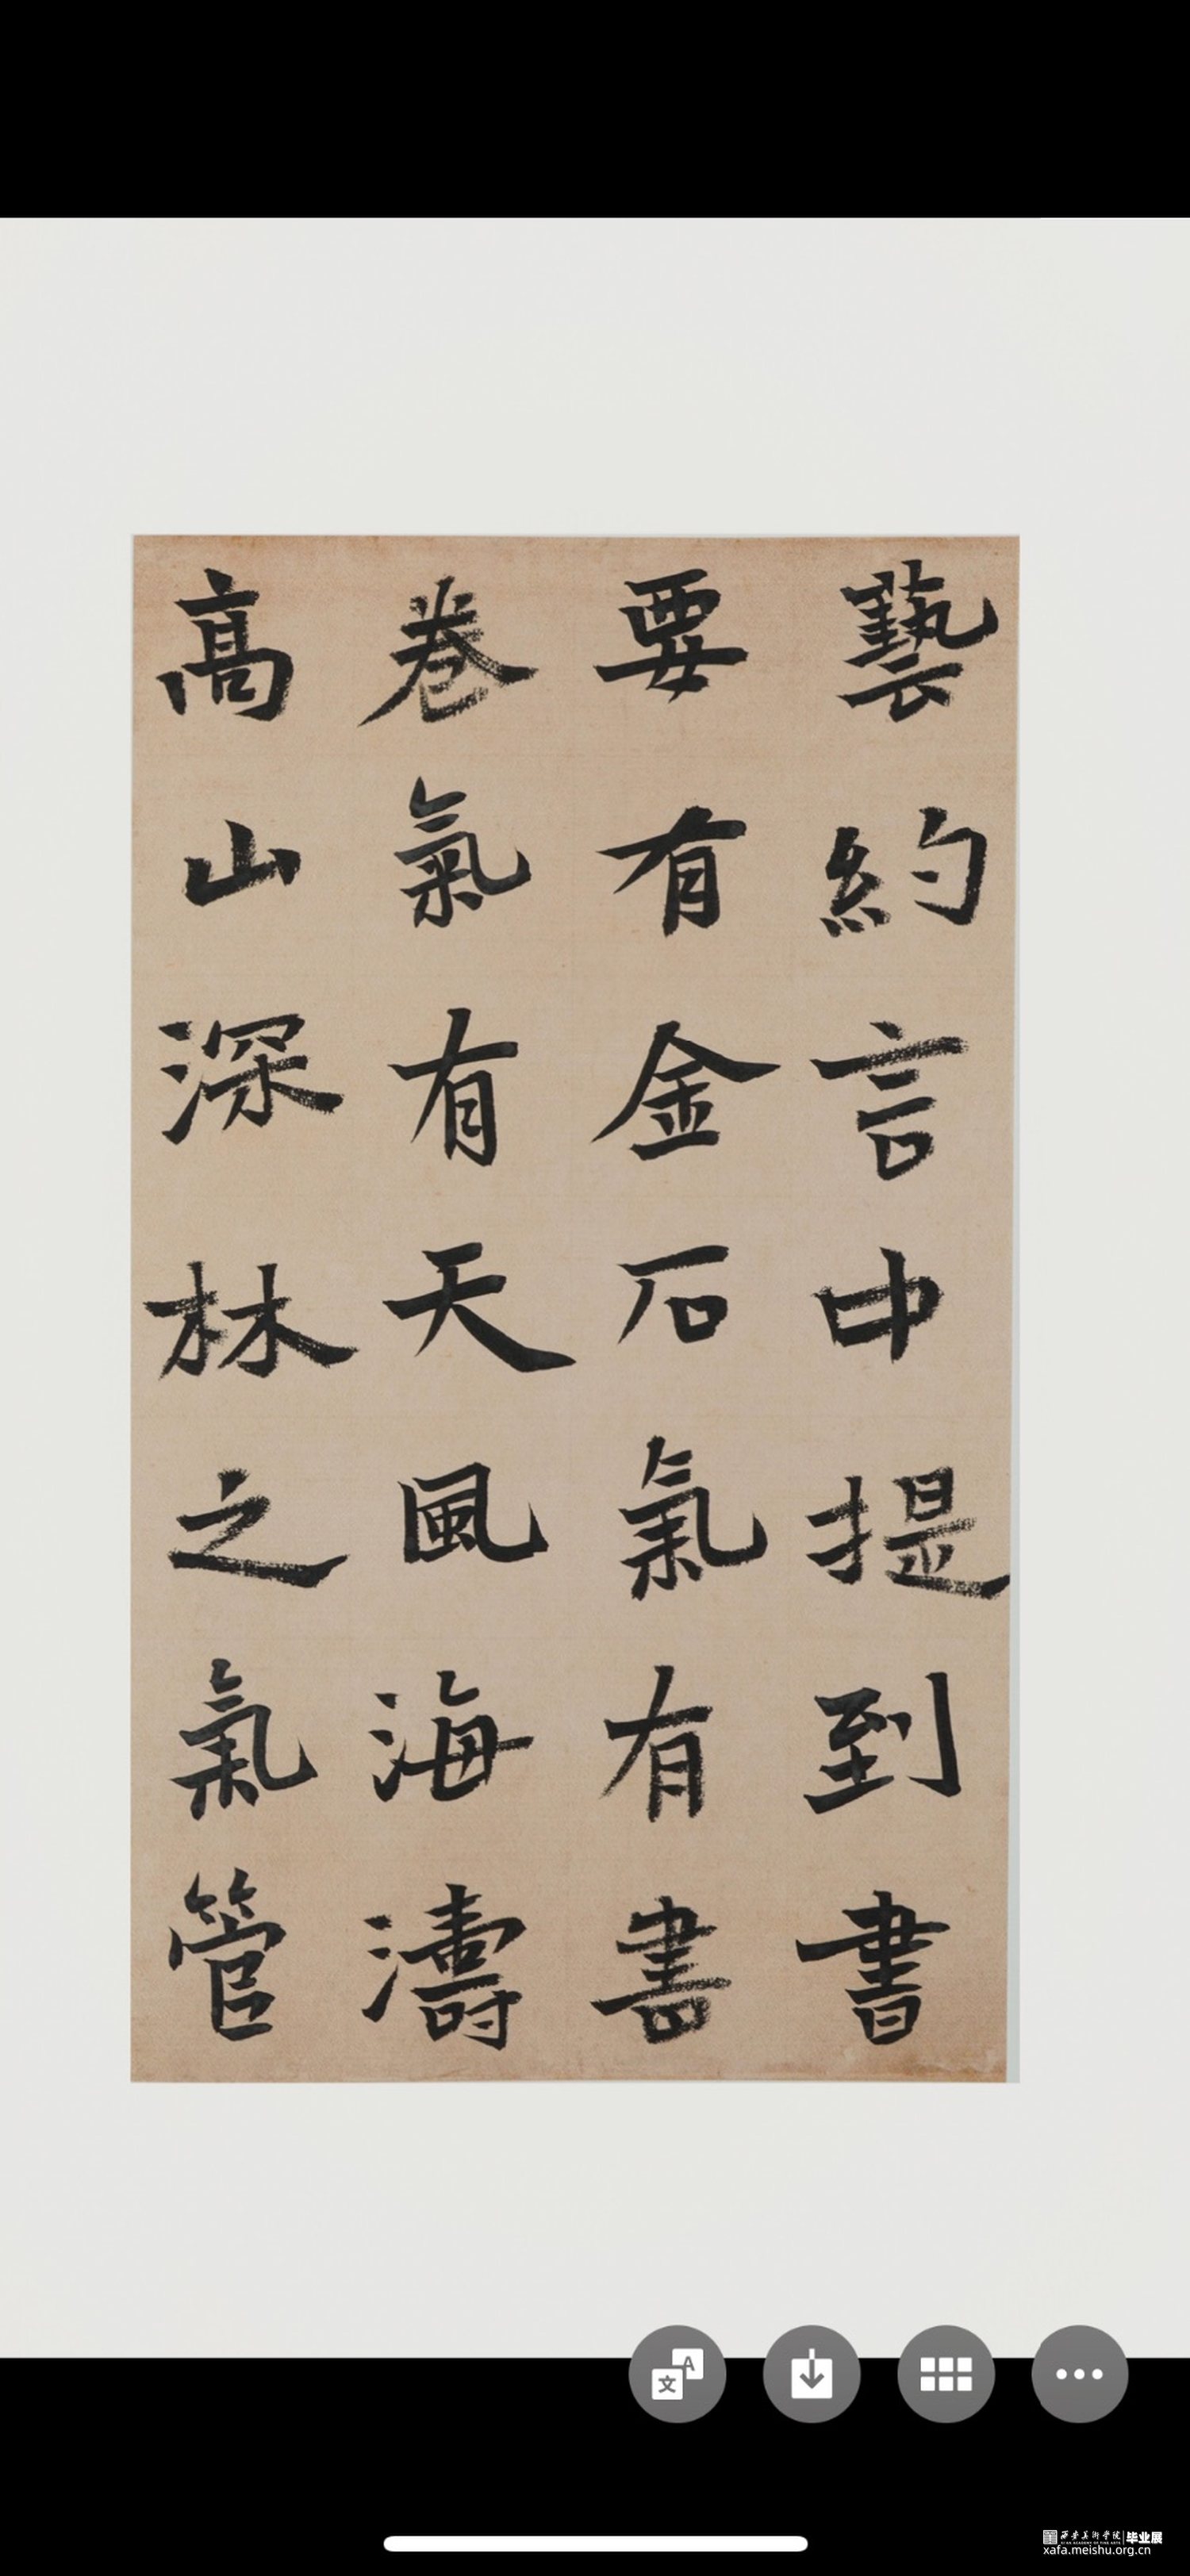 藝約言中提到書
要有金石氣有書
卷氣有天風海濤
高山深林之氣管
文A
西安美術學院 毕业展
XI'AN ACADEMY OF FINE ARTS
xafa.meishu.org.cn